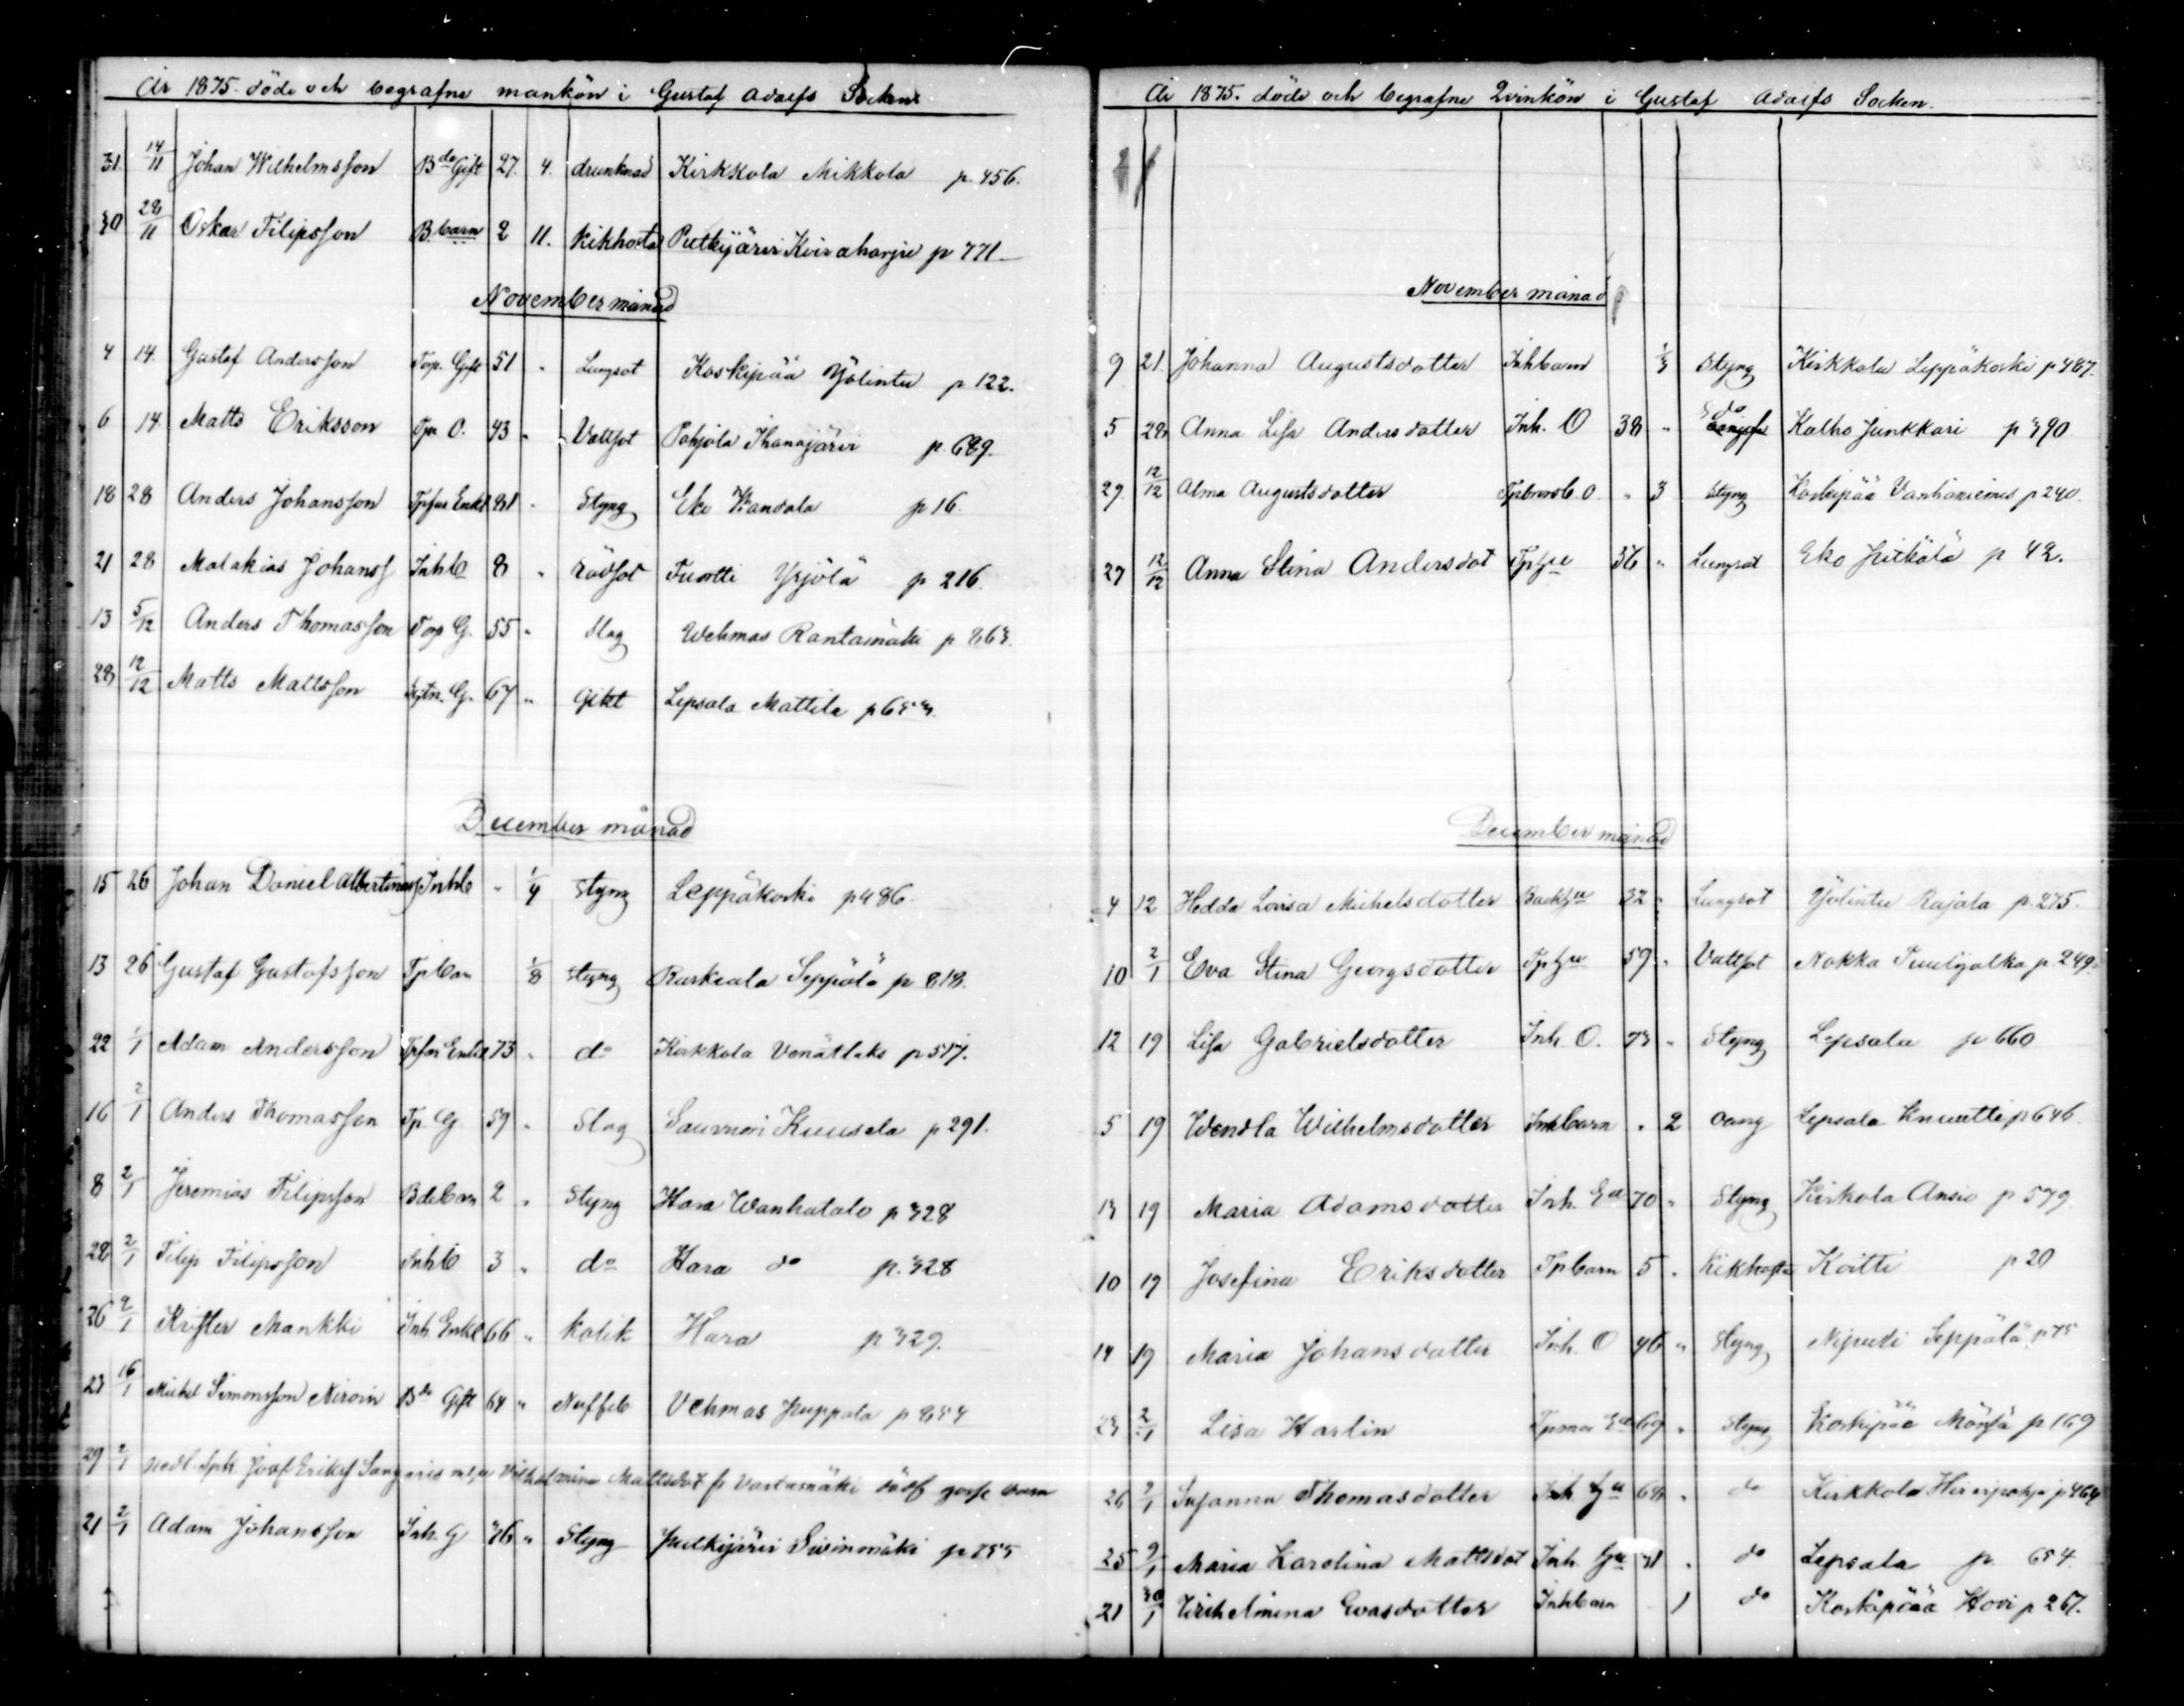 År 1875 döde och begrafne mankön i Gustaf Adolfs Socken
31. 14/11 Johan Wilhelmsson Bde Gift 27. 4. drunknad Kirkkola Mikkola p. 456.
30 28/11 Oskar Filipsson B.barn 2 11. Kikhosta Putkijärvi Koivaharju p 771
November månad
4 14. Gustaf Andersson Torp. Gift 51 " Lungsot Koskipää Yölintu p 122.
6 14. Matts Eriksson Tpr O. 43 " Vattsot Pohjola Ihanajärvi p. 689.
18 28 Anders Johansson Tpfar Enkl 81 " Styng Eko Kandala p 16.
21 28 Malakias Johanss Inhb 8 " rödsot Tuortti Yrjölä p 216.
13 5/12 Anders Thomasson Torp G. 55 " slag Wehmas Rantamäki p 863.
28 12/12 Matts Mattsson G. 67 " Gikt Lepsala Mattila p 653.
December månad
15 26 Johan Daniel Albertinas Inhb " 1/4 styng Leppäkoski p 486.
13 26 Gustaf Gustafsson Tpbarn 1/8 styng Ruskeala Seppälä p 818.
22 1/1 Adam Andersson Tpfar Enkl 73 " do Kirkkola p 517.
16 2/1 Anders Thomasson Tp. G. 59 " Slag Saurum Kuusela p 291.
8 2/1 Jeremias Filipsson Bdebarn 2 " Styng Hara Wanhatalo p 328
28 2/1 Filip Filipsson Inhb 3 " do Hara do p. 328
26 2/1 Krister Mankki Inh Enkl 66 " kolik Hara p 329.
23 16/1 Michel Simonsson Niroin Bde Gift 64 " Vehmas Puppola p 854
29 2/1 Josef Eriks Mattsdot fr Vartiamäki dödf gosse barn
21 2/1 Adam Johansson Inh. G 76 " Styng Putkijärvi Sivinmäki p 755
År 1875. döde och begrafne Qvinkön i Gustaf Adolfs Socken.
November månad
9 21. Johanna Augustsdotter Inhbarn 1/3 Styng Kirkkola Leppäkoski p 487.
5 28 Anna Lisa Andersdotter Inh. O 38 " do Kalho Junkkari p 390
29. 12/12 Alma Augustsdotter O. " 3 styng Koskipää Vanhaniemi p 240.
27 12/12 Anna Stina Andersdot 36 " Lungsot Eko Pitkälä p 42.
December månad
4 12 Hedda Lovisa Michelsdotter 32 " Lungsot Yölintu Rajala p. 275.
10 2/1 Eva Stina Georgsdotter 59 " Vattsot Nokka p. 249.
12 19 Lisa Gabrielsdotter Inh O. 73 " Styng Lepsala p 660
5 19 Wendla Wilhelmsdotter Inhbarn " 2 oang Lepsala Knuutti p 646.
13 19 Maria Adamsdotter Inh. 70 " Styng Kirkola Ansio p 579
10 19 Josefina Eriksdotter Tpbarn 5 " Kikhosta Koitti p 20
14 19 Maria Johansdotter Inh. O 46 " Styng Niputi Seppälä p 75
23 2/1 Lisa Harlin Tpmor 69 " Styng Koskipää Mänsä p 169
26 2/1 Susanna Thomasdotter Inh 64 " do Kirkkola Hirsipohja p 464
25 9/1 Maria Karolina Mattsdot Inh. 31 " do Lepsala p. 654.
21 30/1 Wilhelmina Evasdotter Inhbarn 1 do Koskipää Hovi p 267.